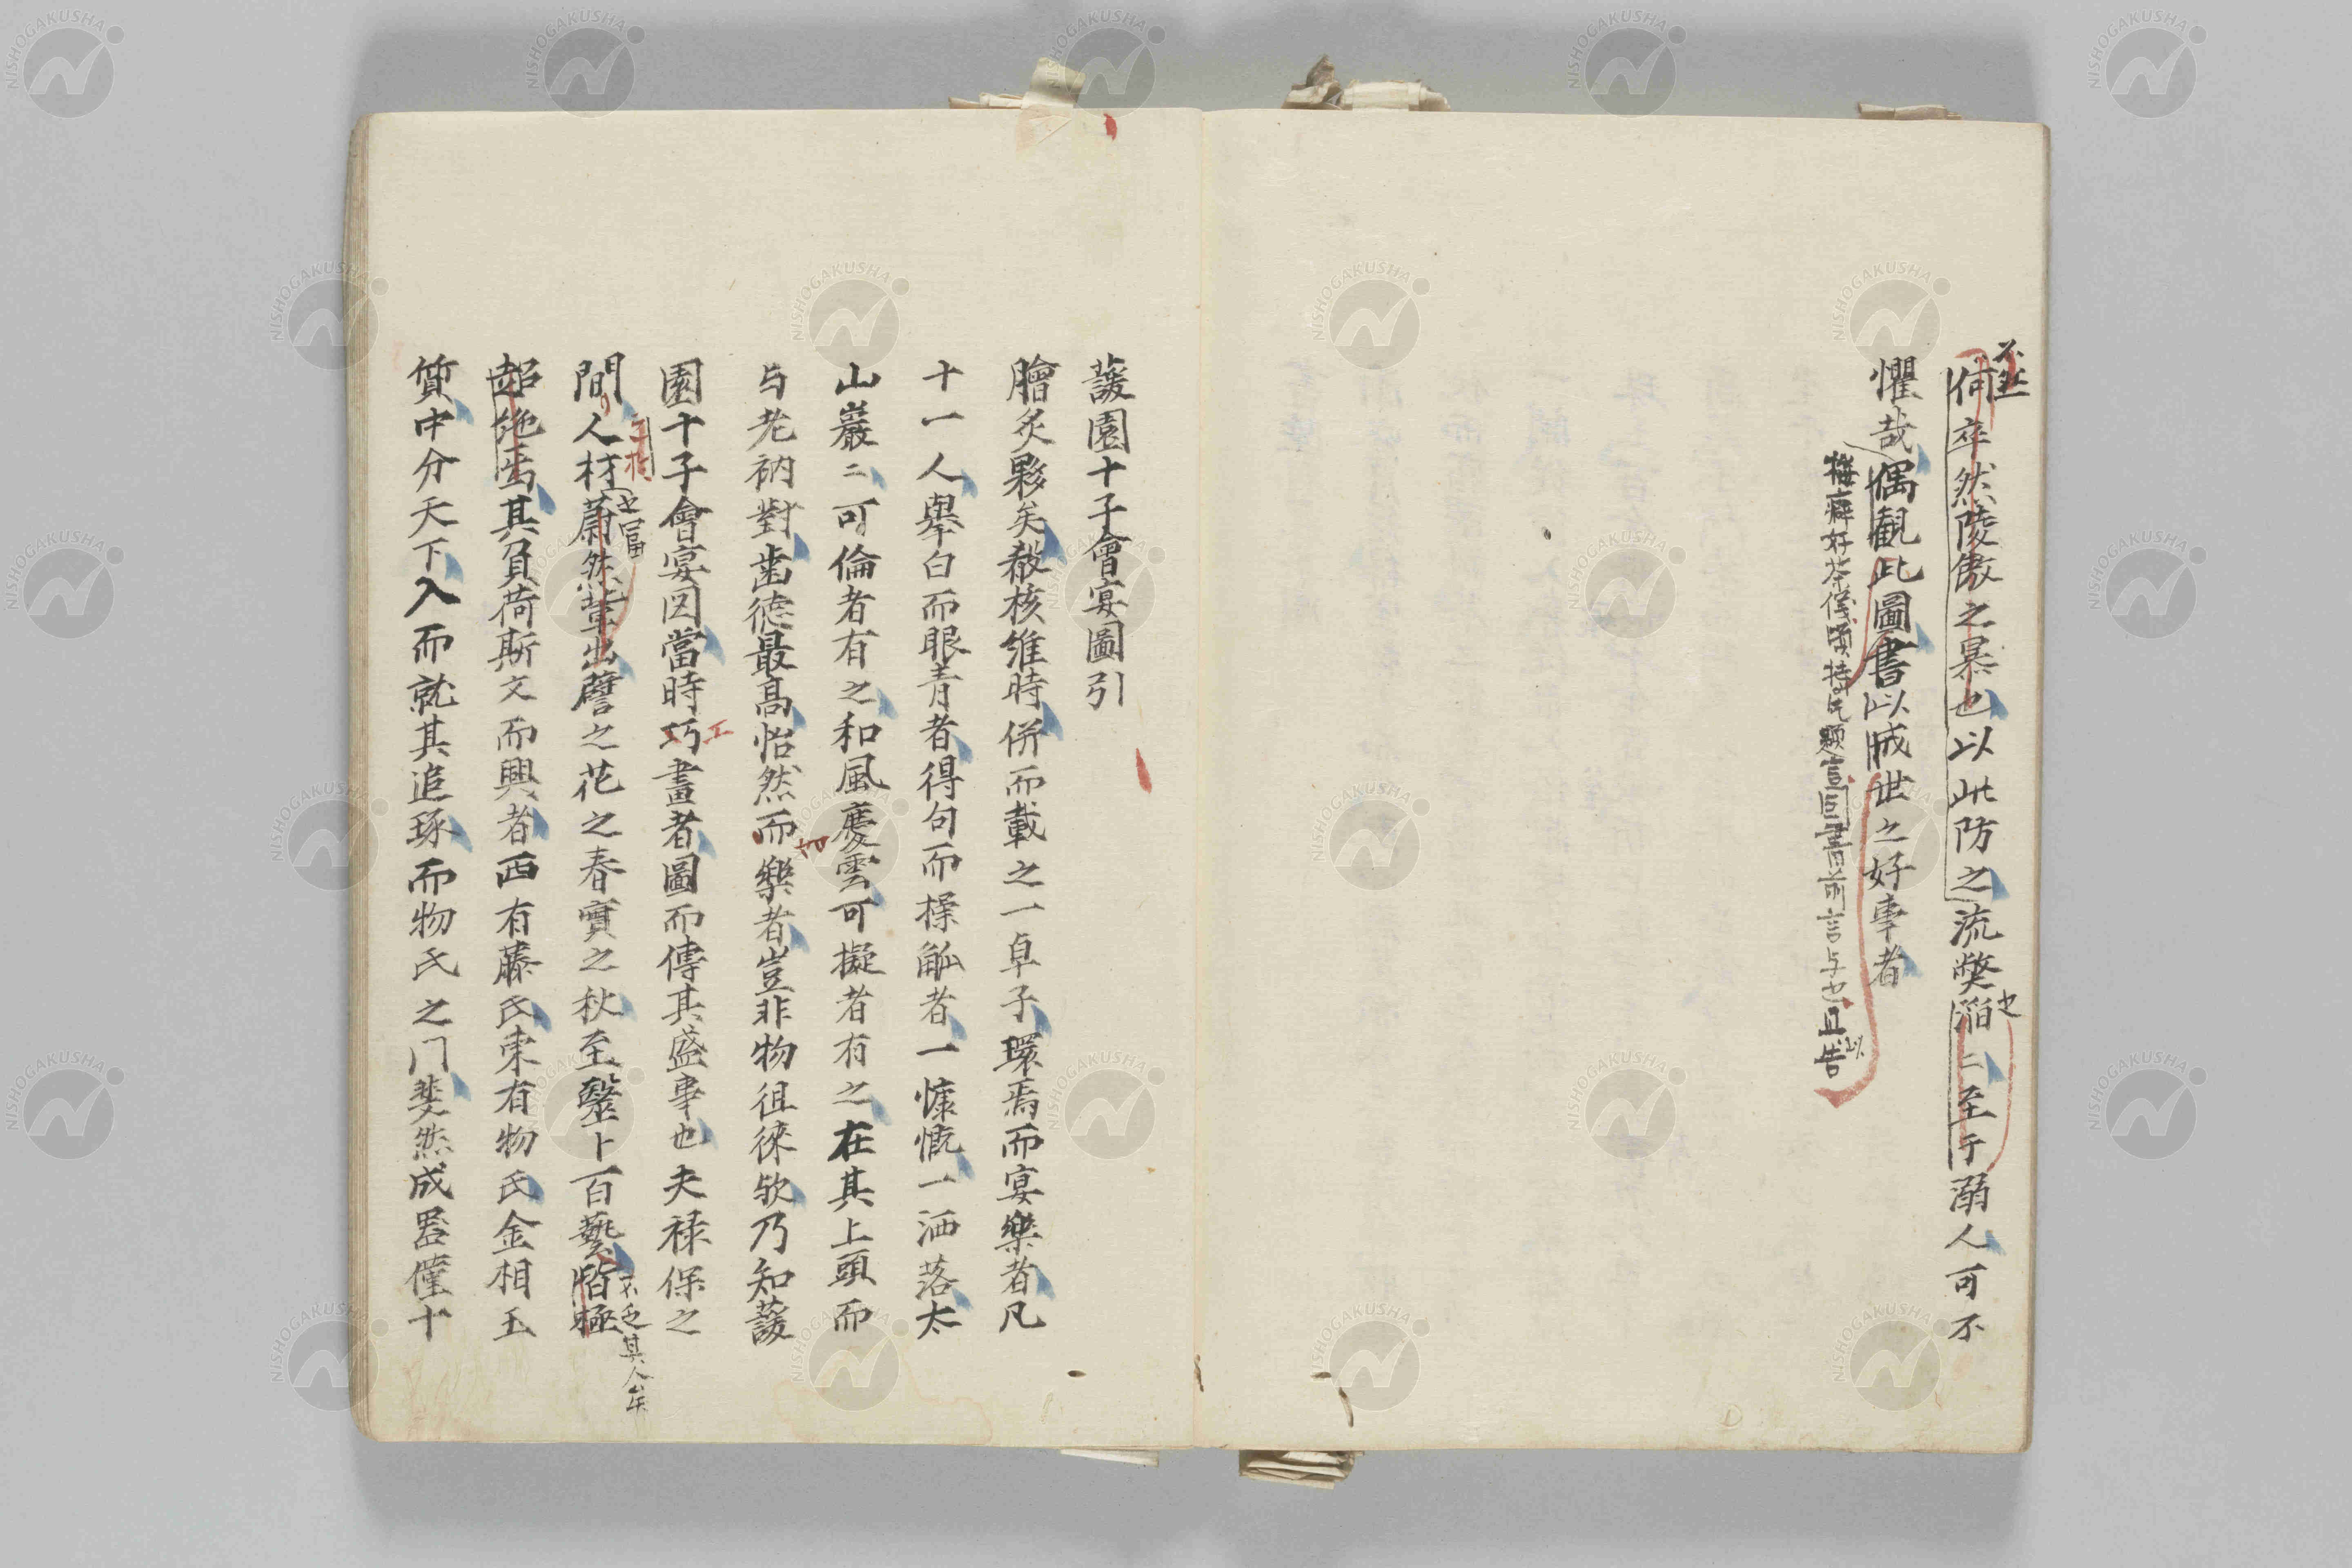 不然
何卒然陵傲之暴也以此防之流弊滔〻至于溺人可不
也
懼哉偶観此圖書以戒世之好事者
梅癖好茶僅頃持此題豈同書前言与也且以告
蘐園十子會宴圖引
膾炙夥矣殽核維時併而載之一卓子環焉而宴樂者凡
十一人舉白而眼青者得句而操觚者一慷慨一洒落太
山巖〻可倫者有之和風慶雲可擬者有之在其上頭而
与老衲對歯徳最高怡然而樂者豈非物徂徠欤乃知蘐
園十子會宴図當時巧畫者圖而傳其盛事也夫禄保之
工
間人材蔚然輩出譬之花之春實之秋至毉卜百藝皆極
也富
不乏其人矣
超絶焉其負荷斯文而興者西有藤氏東有物氏金相玉
質中分天下入而就其追琢而物氏之門斐然成器僅十
NISHOGAKUSHA